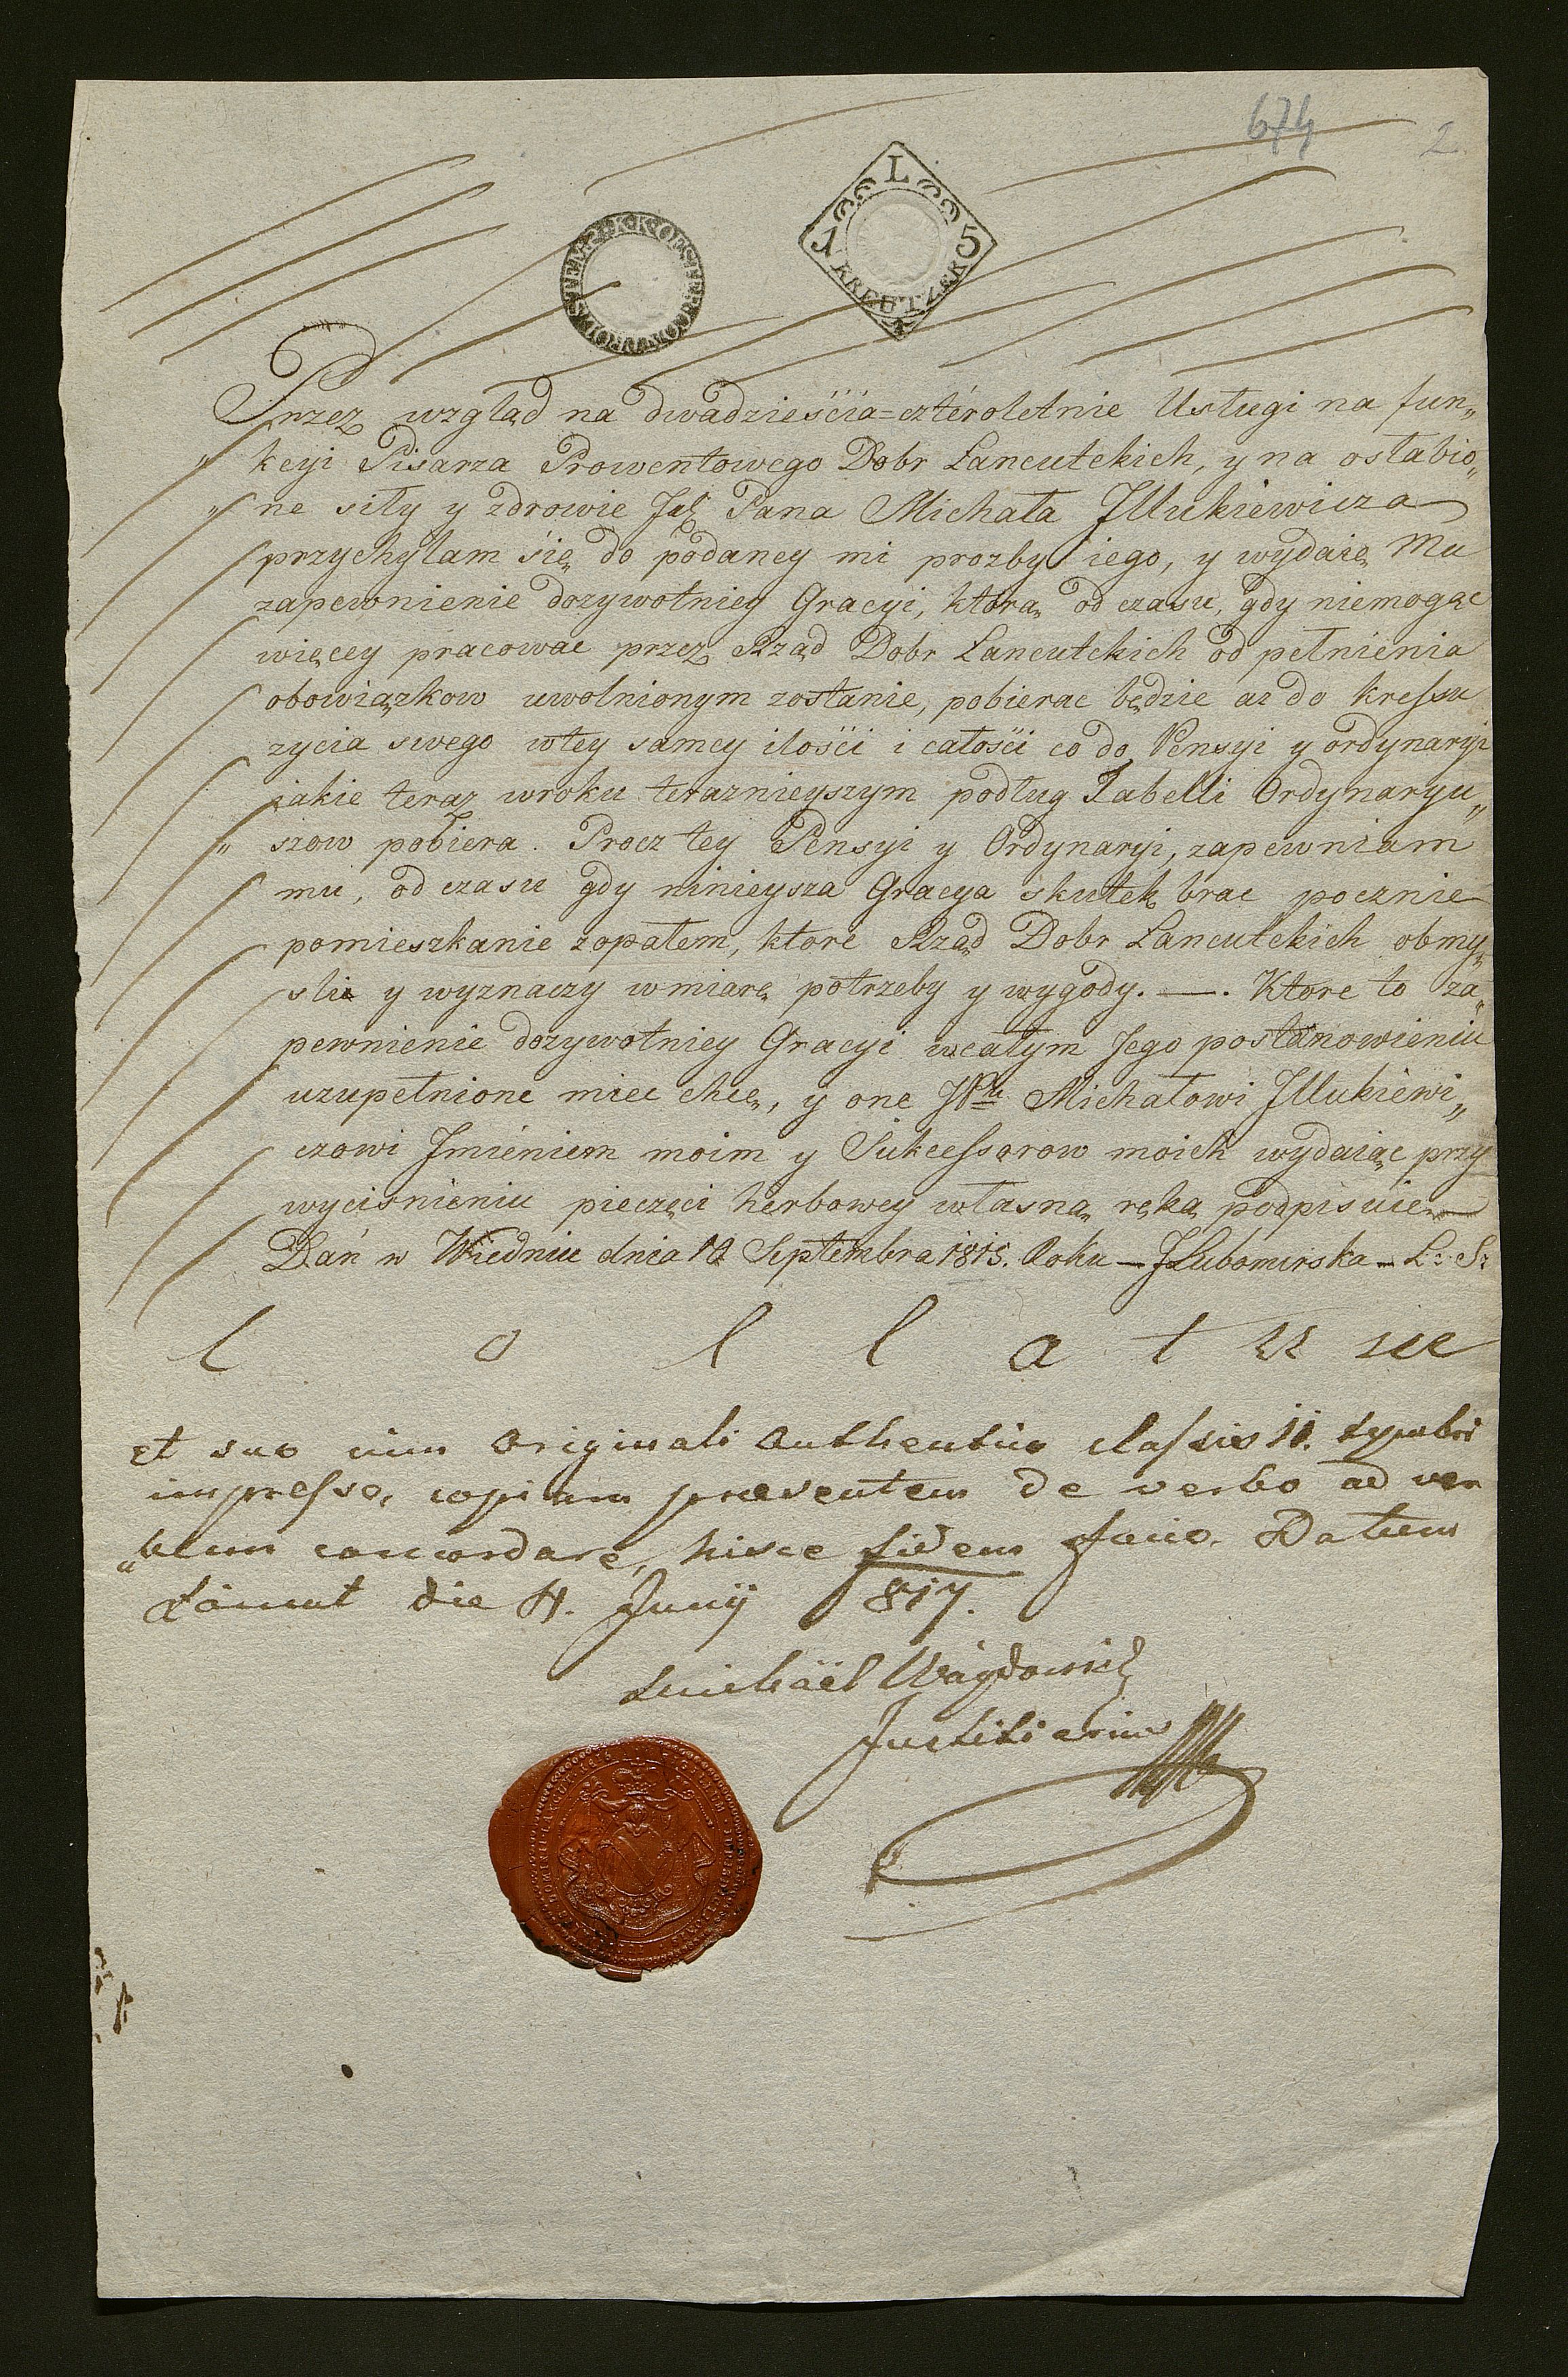 674 2
K. K. OESTER
L
15 KREUTZER
Przez wzgląd na dwadzieścia=czteroletnie Usługi na fun„
„ kcyi Pisarza Prowentowego Dobr Lancutckich, y na osłabio„
„ ne siły y zdrowie Pana Michała Jllukiewicza
przychylam się do podaney mi prozby iego, y wydaię Mu
zapewnienie dozywotniey Gracyi, ktorą od czasu, gdy niemogąc
więcey pracowac przez Rząd Dobr Lancutckich od pełnienia
obowiązkow uwolnionym zostanie, pobierac będzie az do kressu
zycia swego wtey samey ilości i całości co do Pensyi y ordynaryi
jakie teraz wroku teraznieyszym podług Tabelli Ordynaryu„
„ szow pobiera. Procz tey Pensyi y Ordynaryi, zapewniam
mu, od czasu gdy ninieysza Gracya skutek brac pocznie
pomieszkanie zopałem, ktore Rząd Dobr Lancutckich obmy„
sli y wyznaczy wmiarę potrzeby y wygody. —. Ktore to za„
pewnienie dozywotniey Gracyi wcałym Jego postanowieniu
uzupełnione miec chcę, y one JPu Michałowi Jllukiewi„
czowi Jmieniem moim y Sukcessorow moich wydaiąc przy
wycisnieniu pieczęci herbowey własną ręką podpisuię
Dań w Wiedniu dnia Septembra 1815. Roku — JLubomirska — L: S:
Collatum
et suo cum Originali Authentico classis II. symbri
impresso, copiam praesentem de verbo ad ver
„bum concordare, hisce fidem facio. Datum
Łancut die 4. Junij 1817.
Michäel
Justitiarius